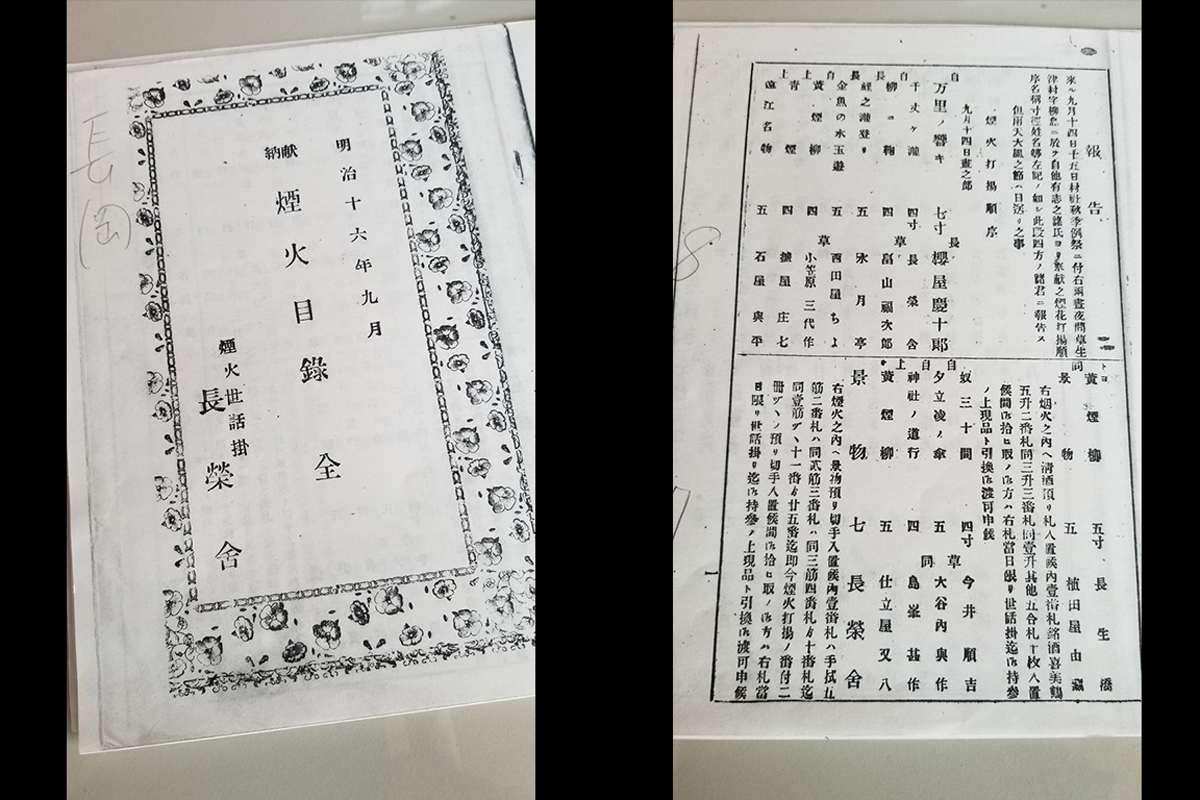 長岡
明治十六年九月
献納
煙火目錄全
煙火世話掛
長榮舍
報告
來ル九月十四日十五日村社秋季例祭ニ付右兩晝夜間草生
津村字柳島ニ放テ自他有志之諸氏ヨリ奉献之煙花打揚順
序名稱寸逕姓名等左記ノ如シ此段四方ノ諸君ニ報告ス
但雨天大風之節ハ日送リ之事
煙火打揚順序
九月十四日晝之部
自
万里ノ響キ 七寸 長 櫻屋慶十郎
千丈ヶ瀧 四寸 長榮舍
自
柳ニ鞠 四 草 畠山福次郎
長
鯉之瀧登リ 五 氷月亭
長
金魚の水玉遊 五 西田屋ちよ
自
黃煙柳 四 草 小笠原三代作
上
青煙 四 搗屋庄七
上
遠江名物 五 石屋與平
黃煙柳 五寸 長生橋
景物 五 植田屋由藏
右烟火之內ヘ淸酒預リ札入置候內壹番札銘酒喜美鶴
五升二番札同三升三番札同壹升其他五合札十枚入置
候間御拾ヒ取ノ御方ハ右札當日限リ世話掛迄御持參
ノ上現品ト引換御渡可申候
奴三十間 四寸 草 今井順吉
自
夕立凌ノ傘 五 同 大谷內與作
自
神社ノ道行 四 島峯甚作
上
黃煙柳 五 仕立屋又八
景物 七 長榮舍
右煙火之內ヘ景物預リ切手入置候內壹番札ハ手拭五
筋二番札ハ同貳筋三番札ハ同三筋四番札ゟ十番札迄
同壹筋ヅヽ十一番ゟ廿五番迄即今煙火打揚ノ番付二
冊ヅヽノ預リ切手入置候間御拾ヒ取ノ御方ハ右札當
日限リ世話掛リ迄御持參ノ上現品ト引換御渡可申候